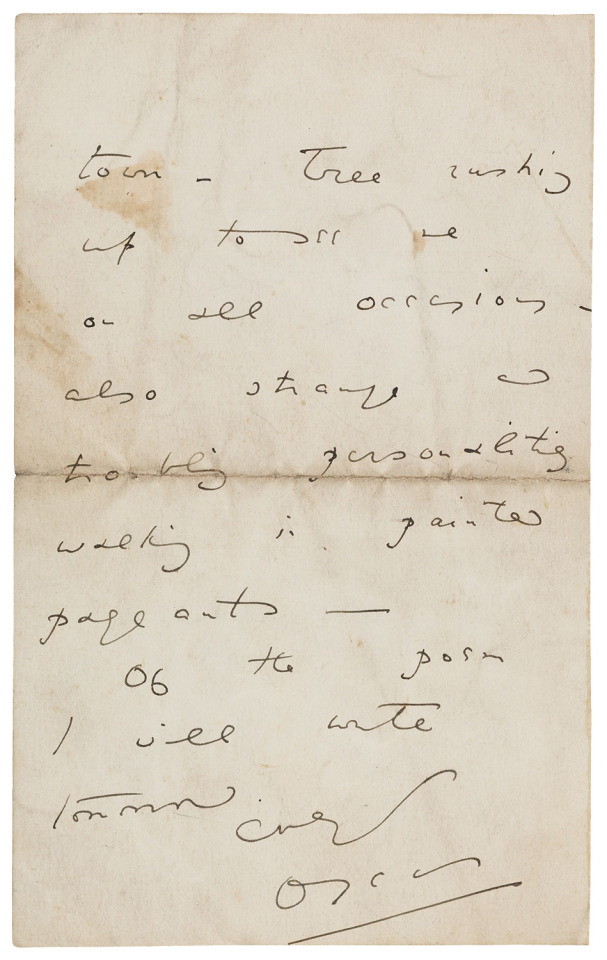 town – Tree rushing
up to see me
on all occasions –
also strange and
troubling personalities
walking in painted
pageants —
Of the poem
I will write
tomorrow. Ever
Oscar